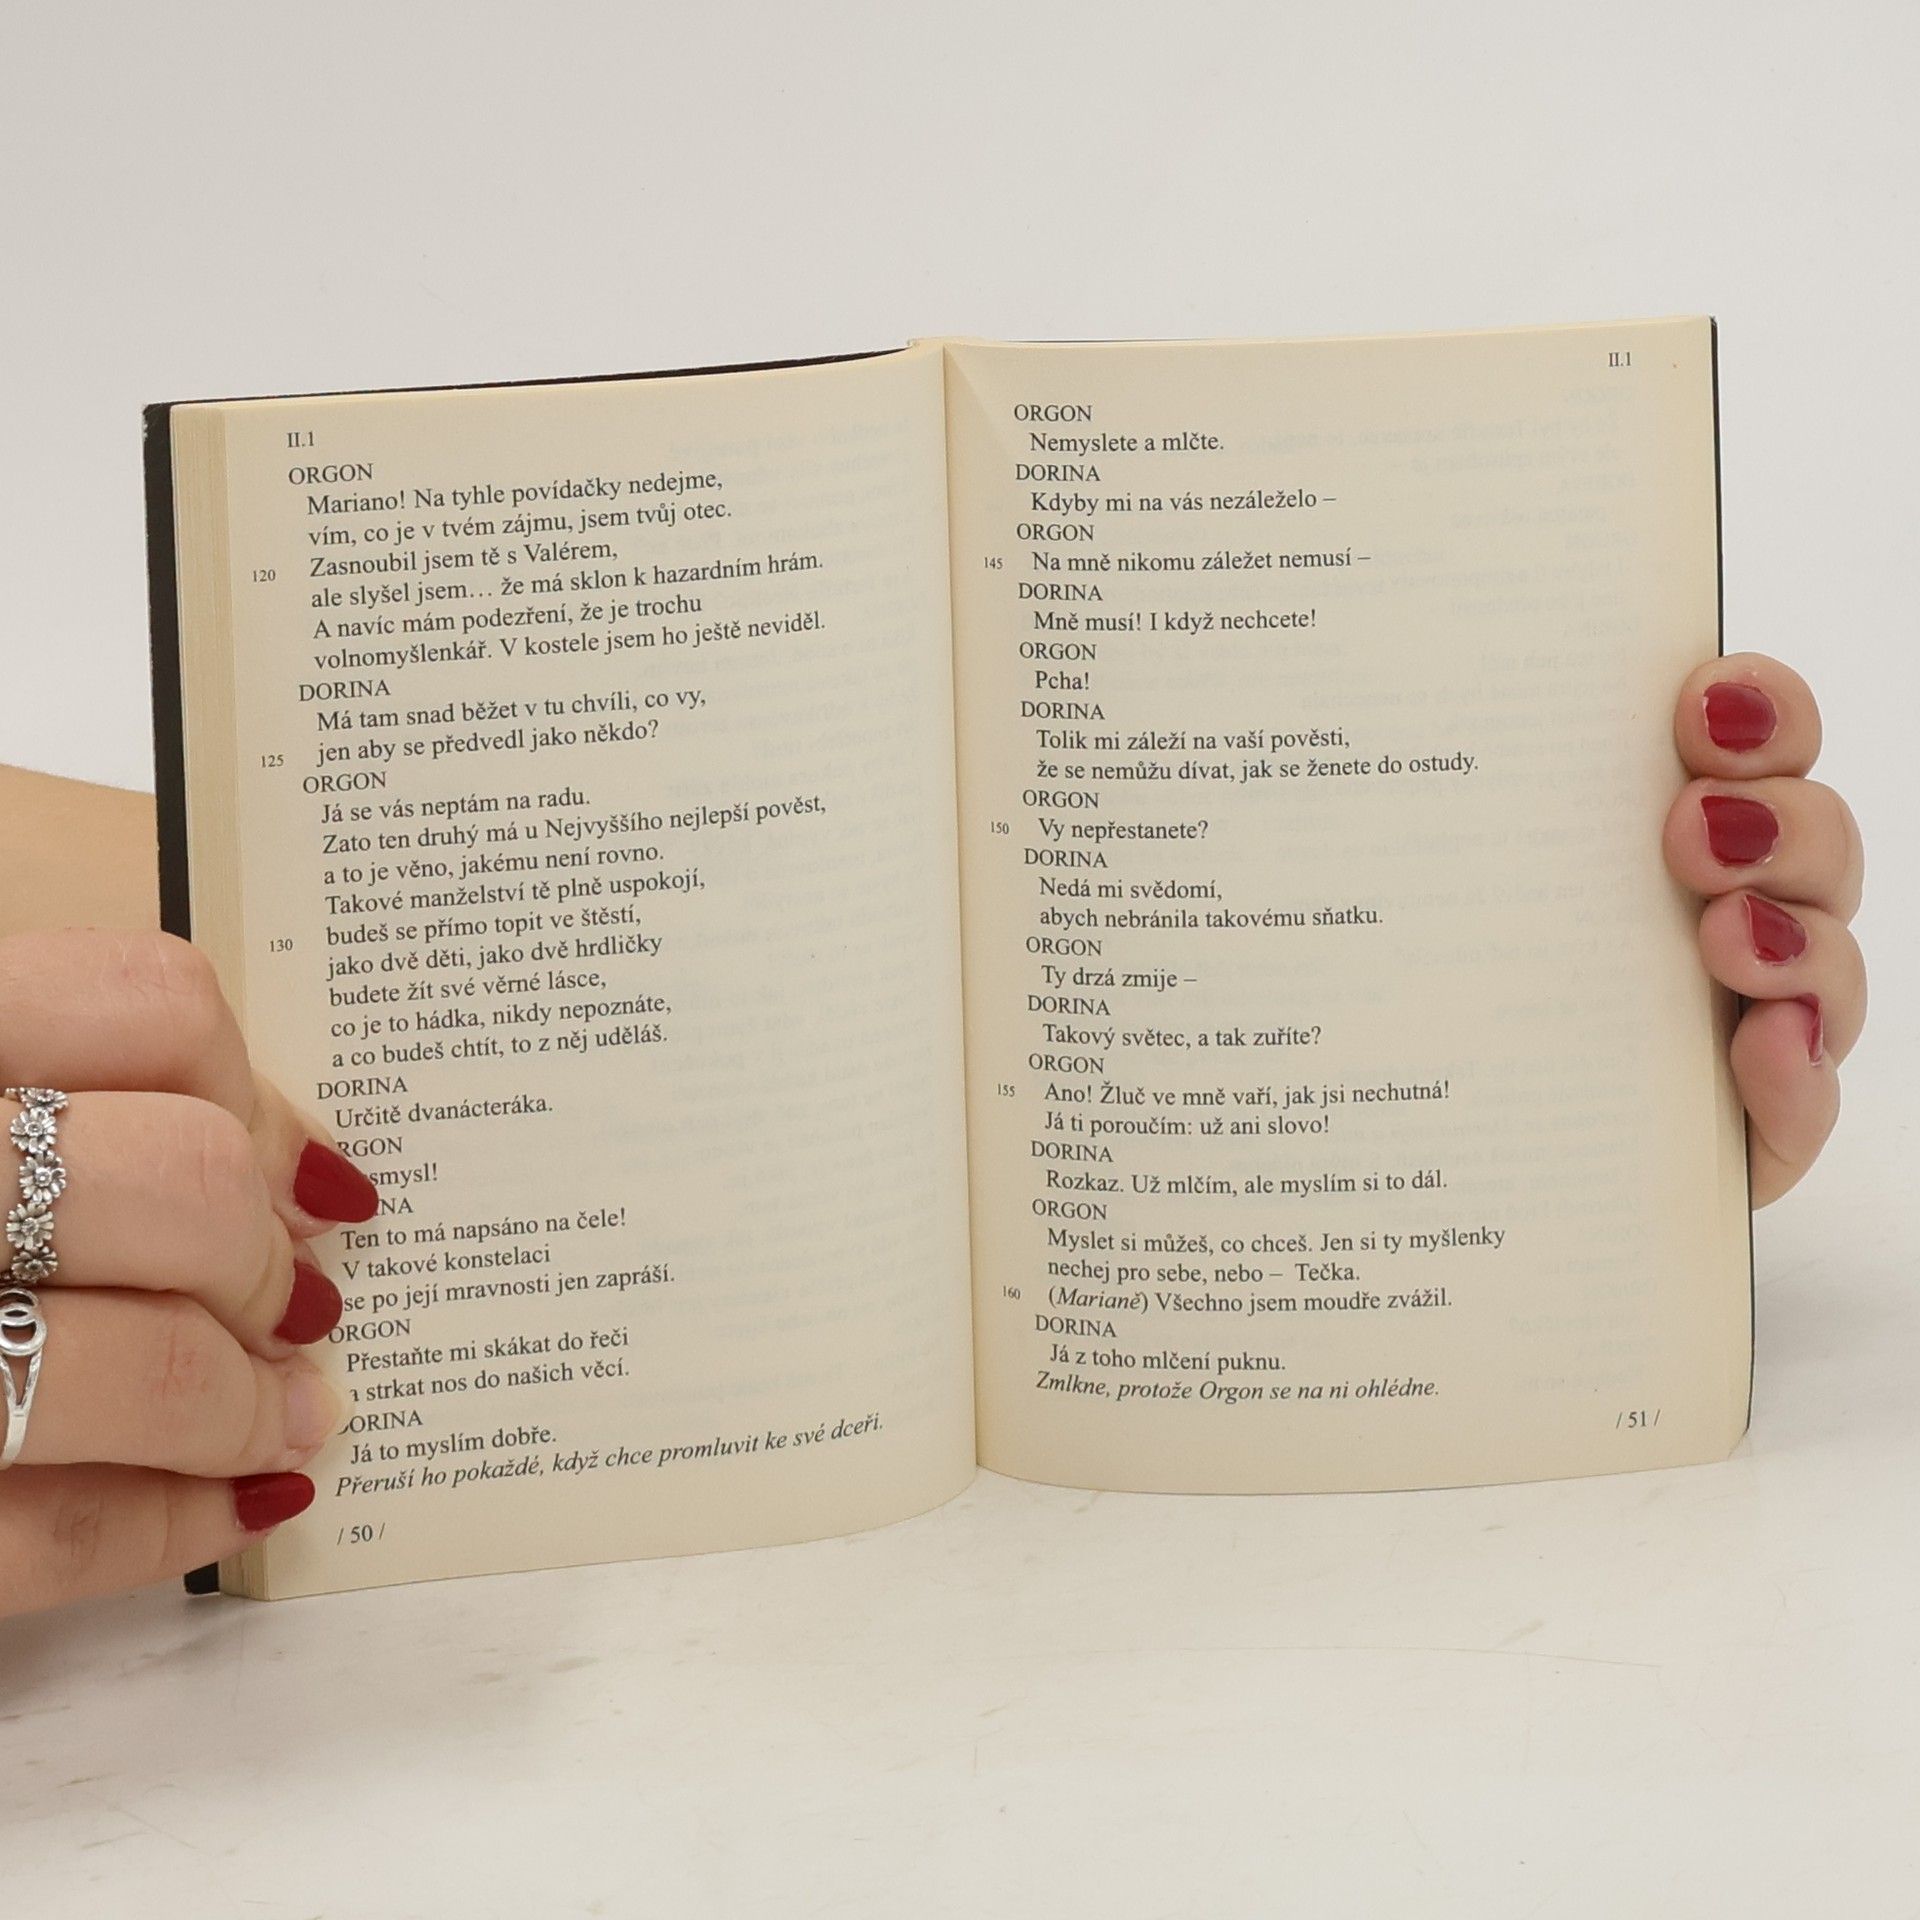 II.1
ORGON
Mariano! Na tyhle povídačky nedejme,
vím, co je v tvém zájmu, jsem tvůj otec.
Zasnoubil jsem tě s Valérem,
120 ale slyšel jsem… že má sklon k hazardním hrám.
A navíc mám podezření, že je trochu
volnomyšlenkář. V kostele jsem ho ještě neviděl.
DORINA
Má tam snad běžet v tu chvíli, co vy,
125 jen aby se předvedl jako někdo?
ORGON
Já se vás neptám na radu.
Zato ten druhý má u Nejvyššího nejlepší pověst,
a to je věno, jakému není rovno.
Takové manželství tě plně uspokojí,
130 budeš se přímo topit ve štěstí,
jako dvě děti, jako dvě hrdličky
budete žít své věrné lásce,
co je to hádka, nikdy nepoznáte,
a co budeš chtít, to z něj uděláš.
DORINA
Určitě dvanácteráka.
RGON
smysl!
INA
Ten to má napsáno na čele!
V takové konstelaci
se po její mravnosti jen zapráší.
ORGON
Přestaňte mi skákat do řeči
a strkat nos do našich věcí.
DORINA
Já to myslím dobře.
Přeruší ho pokaždé, když chce promluvit ke své dceři.
/ 50 /
II.1
ORGON
Nemyslete a mlčte.
DORINA
Kdyby mi na vás nezáleželo –
ORGON
145 Na mně nikomu záležet nemusí –
DORINA
Mně musí! I když nechcete!
ORGON
Pcha!
DORINA
Tolik mi záleží na vaší pověsti,
že se nemůžu dívat, jak se ženete do ostudy.
ORGON
150 Vy nepřestanete?
DORINA
Nedá mi svědomí,
abych nebránila takovému sňatku.
ORGON
Ty drzá zmije –
DORINA
Takový světec, a tak zuříte?
ORGON
155 Ano! Žluč ve mně vaří, jak jsi nechutná!
Já ti poroučím: už ani slovo!
DORINA
Rozkaz. Už mlčím, ale myslím si to dál.
ORGON
Myslet si můžeš, co chceš. Jen si ty myšlenky
nechej pro sebe, nebo – Tečka.
160 (Marianě) Všechno jsem moudře zvážil.
DORINA
Já z toho mlčení puknu.
Zmlkne, protože Orgon se na ni ohlédne.
/ 51 /